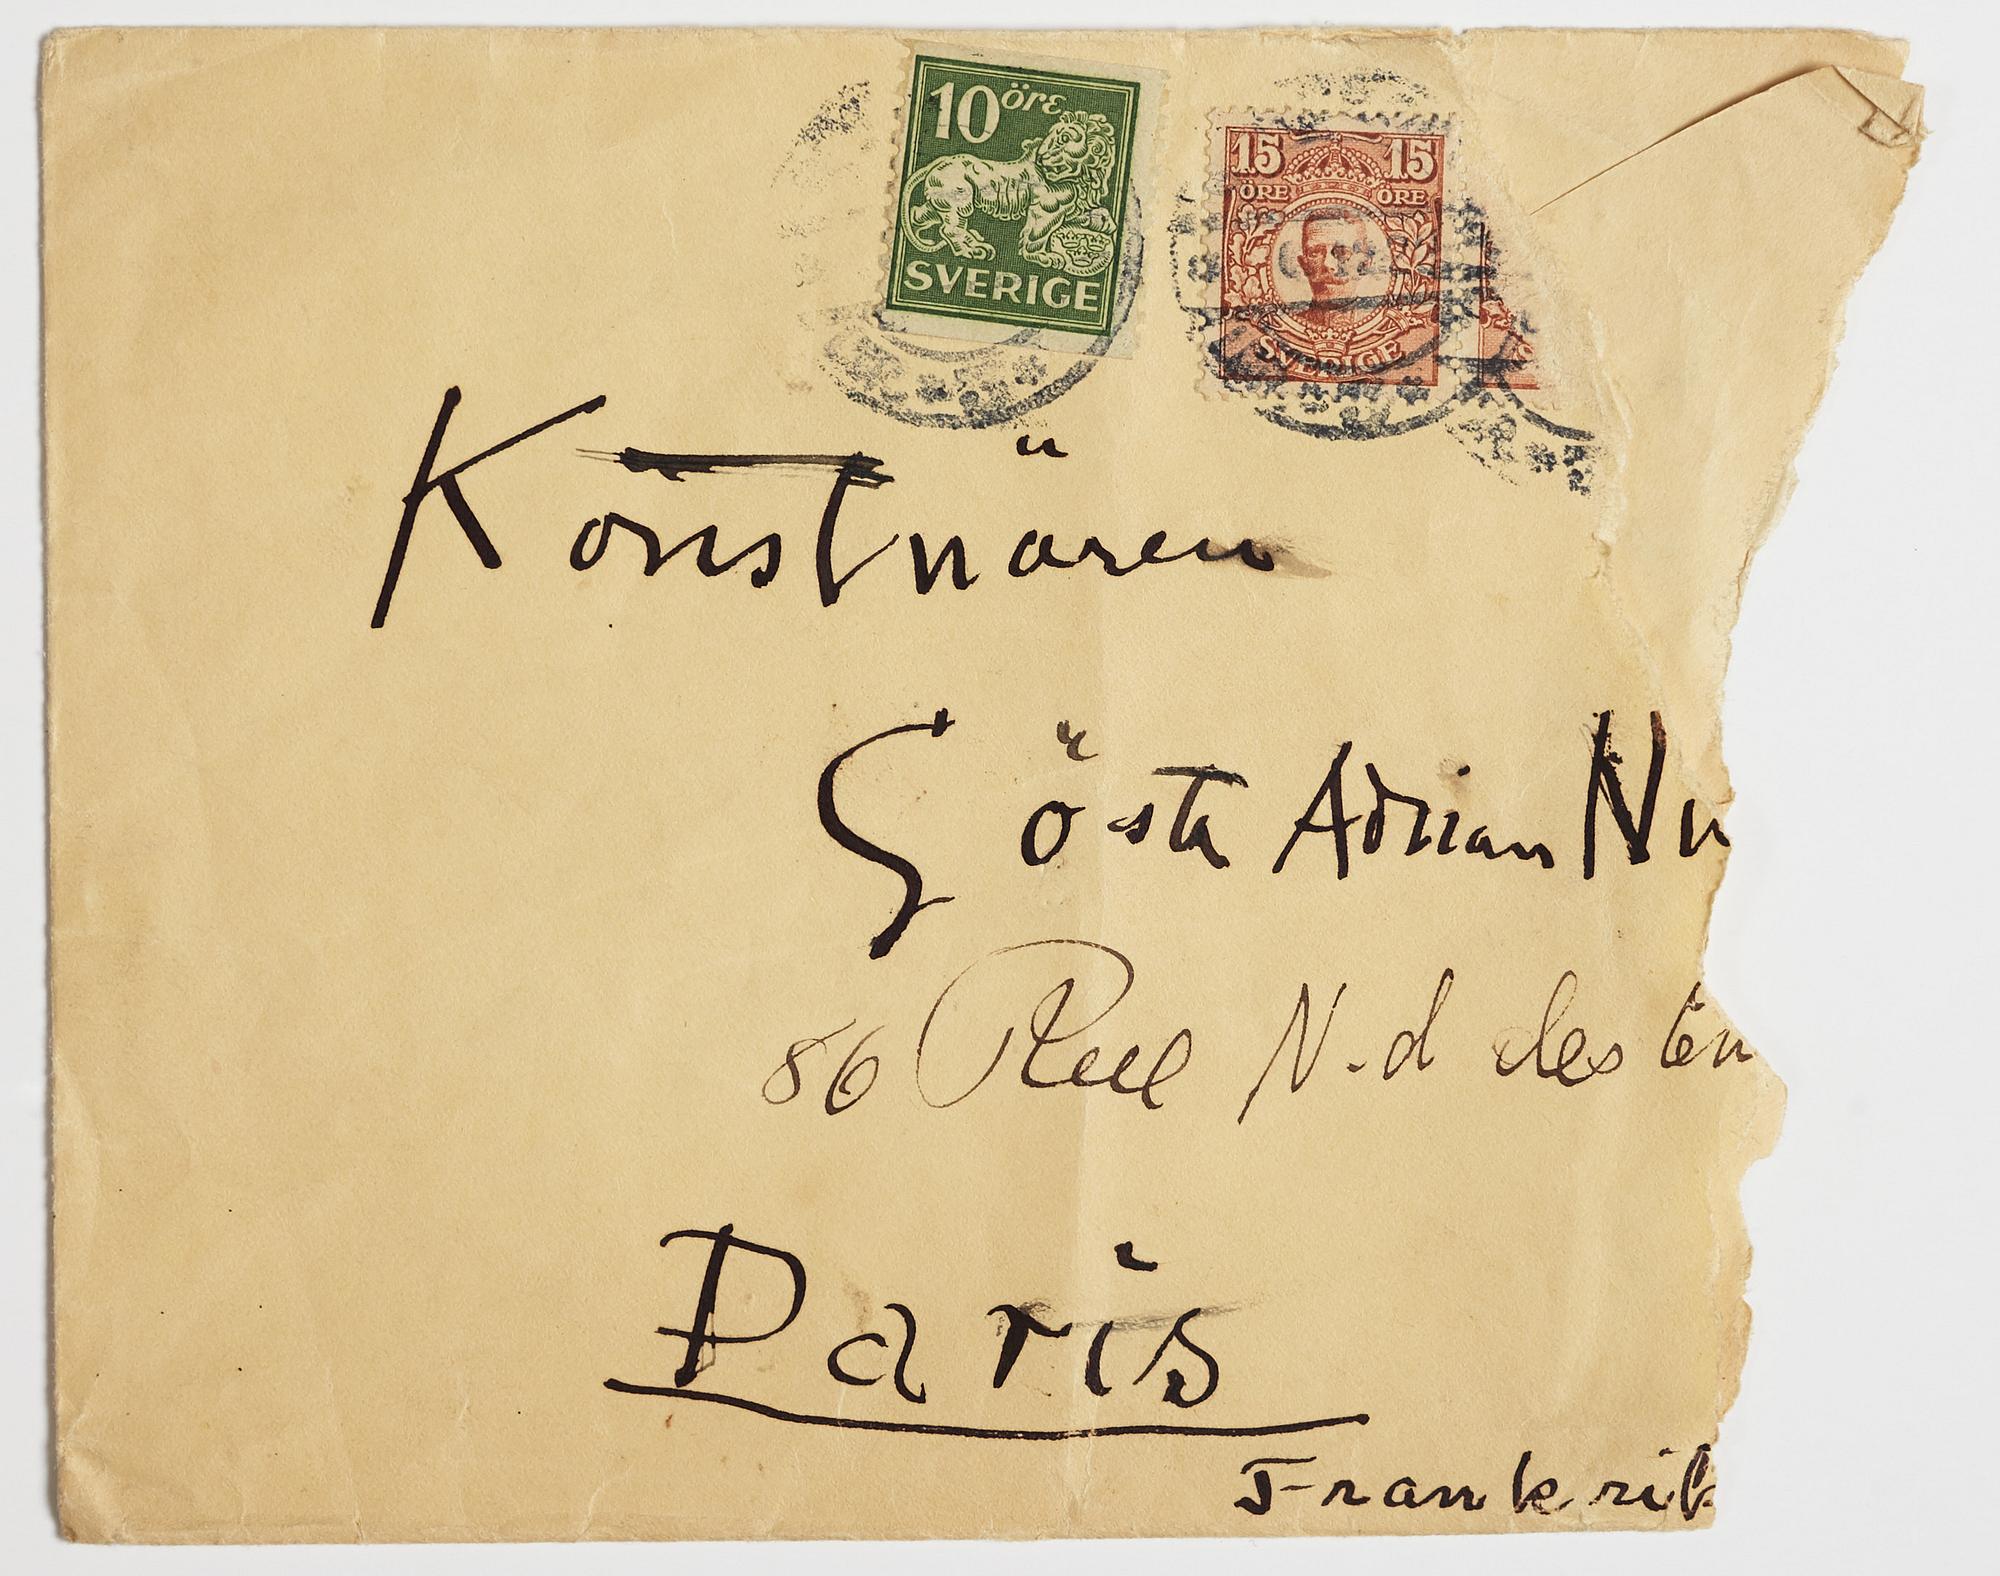 10 öre
SVERIGE
15 15
ÖRE ÖRE
SVERIGE
Konstnären
Gösta Adrian N
86 Rue N.d des
Paris
Frankrik